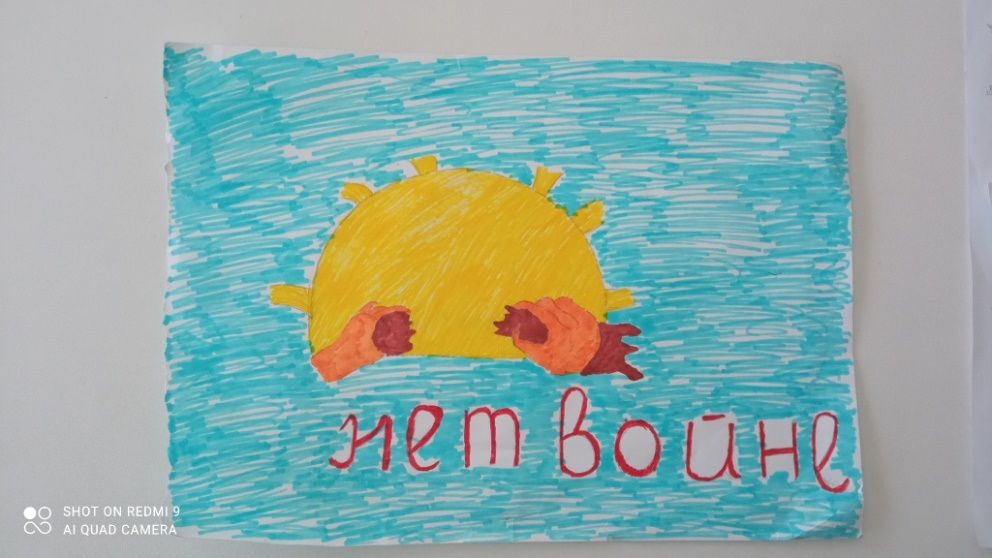 нет войне
SHOT ON REDMI 9
AI QUAD CAMERA